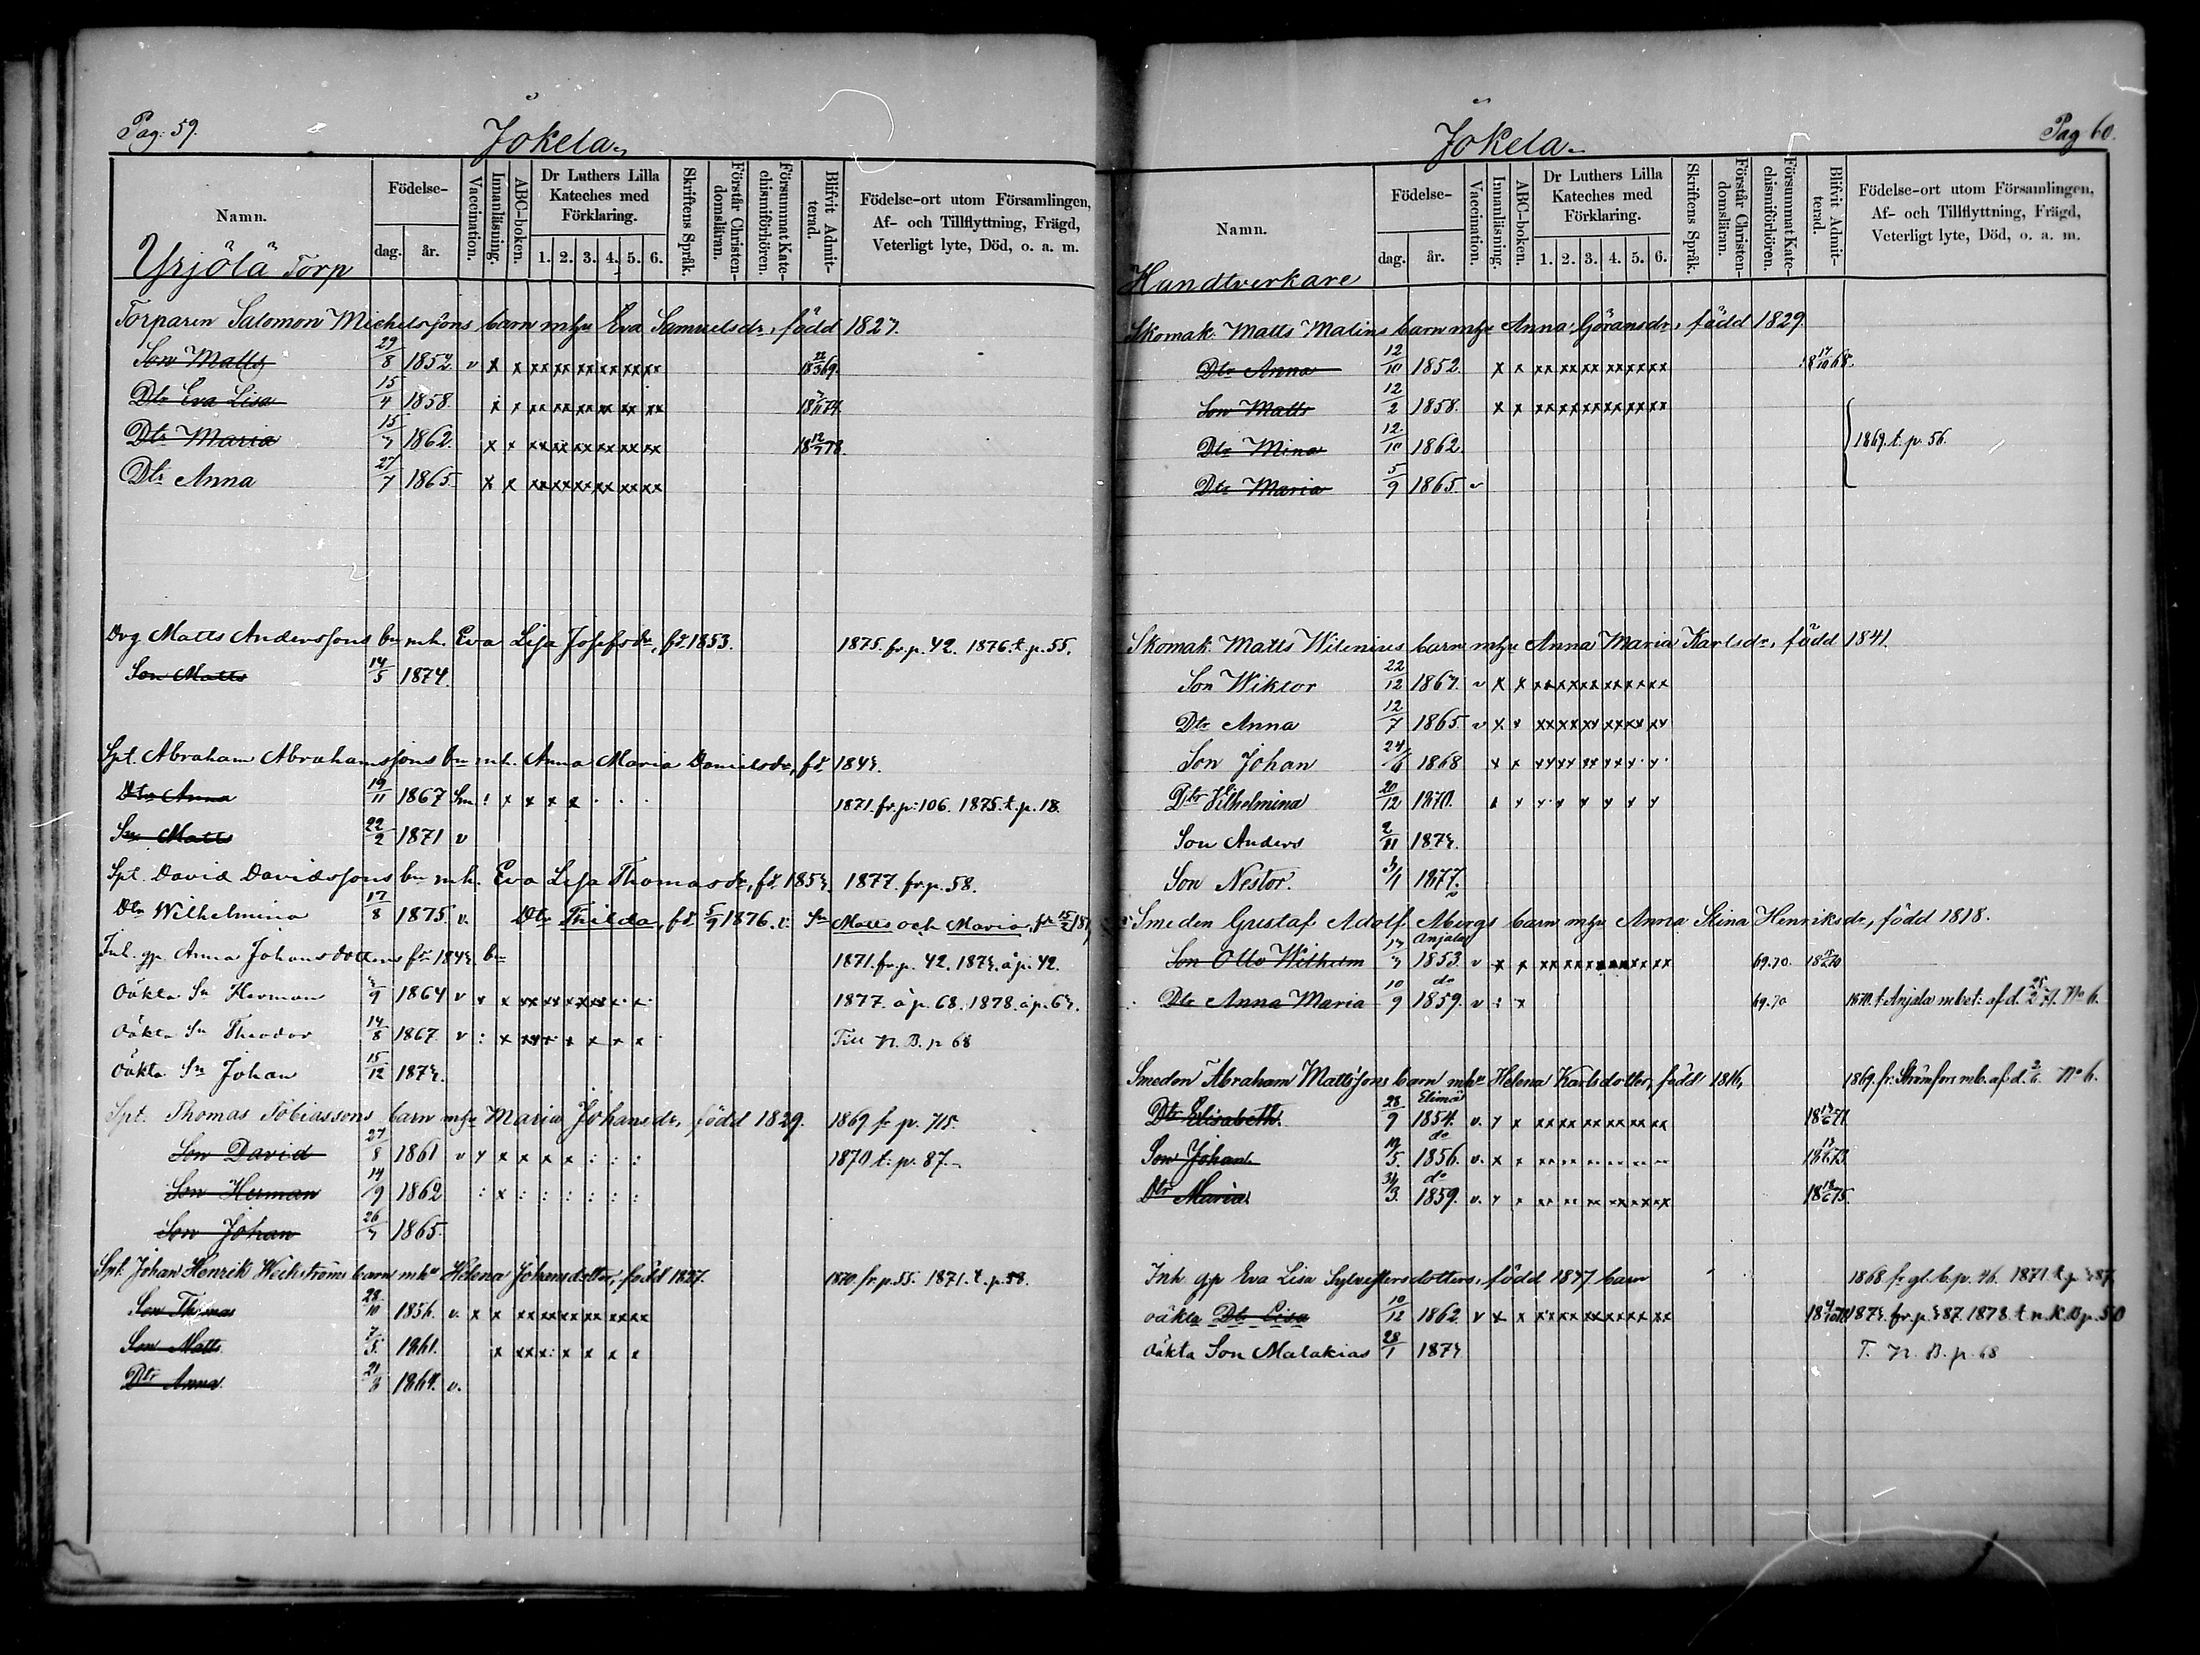 Pag: 59.
Jokela.
Namn.
Födelse-
dag. år.
Vaccination.
Innanläsning.
ABC-boken.
Dr Luthers Lilla Kateches med Förklaring.
1. 2. 3. 4. 5. 6.
Skriftens Språk.
Förstår Christen-domsläran.
Försummat Kate-chismiförhören.
Blifvit Admit-terad.
Födelse-ort utom Församlingen, Af- och Tillflyttning, Frägd, Veterligt lyte, Död, o. a. m.
Yrjölä Torp
Torparen Salomon Michelssons barn m hu Eva Samuelsdr, född 1827.
Son Matts 29/8 1852 v x x xx xx xx xx xx xx 18 22/3 69.
Dtr Eva Lisa 15/4 1858. x x xx xx xx xx xx xx
Dtr Maria 15/7 1862. x x xx xx xx xx xx xx 18 12/7 78.
Dtr Anna 27/7 1865. x x xx xx xx xx xx xx
Drg Matts Anderssons bn m h. Eva Lisa Josefsdr, fd. 1853. 1875. fr. p. 42. 1876. t. p. 55.
Son Matts 14/5 1874.
Spt. Abraham Abrahamssons bn m h. Anna Maria Danielsdr, fd.
Dtr Anna 19/11 1867 : x x x x . . . 1871. fr. p: 106. 1875. t. p. 18.
Sn Matts 22/2 1871 v
Spt. David Davidssons bn m h. Eva Lisa Thomasdr, fd. 1877. fr. p. 58.
Dtr Wilhelmina 17/8 1875 v. Dtr Thilda, fd 5/9 1876. v. Sn Matts och Maria
Inh. gp. Anna Johansdotters bn 1871. fr. p. 42.
Oäkta Sn Herman 1864 v x x xx xx x xx x. x. 1877. å p. 68. 1878. å p.
Oäkta Sn Theodor 14/8 1867 v : x xxx x x x x Till N. B. p 68
Oäkta Sn Johan 15/12
Spt. Thomas Tobiassons barn m hu Maria Johansdr, född 1829. 1869 fr p. 715.
Son David 27/8 1861 v x x x x x : : : 1870 t: p. 87.
Son Herman 14/9 1862 : x : : : : : :
Son Johan 26/7 1865.
Spt. Johan Henrik Weckströms barn m hu Helena Johansdotter, född 1827. 1870. fr. p. 55. 1871. t. p. 58.
Son Thomas 28/10 1856. v. x x xx xx xx xx xx xx
Son Matts 7/5 1861. x xxx x x x x
Dtr Anna 21/3 1864. v.
Pag 60.
Jokela.
Namn.
Födelse-
dag. år.
Vaccination.
Innanläsning.
ABC-boken.
Dr Luthers Lilla Kateches med Förklaring.
1. 2. 3. 4. 5. 6.
Skriftens Språk.
Förstår Christen-domsläran.
Försummat Kate-chismiförhören.
Blifvit Admit-terad.
Födelse-ort utom Församlingen, Af- och Tillflyttning, Frägd, Veterligt lyte, Död, o. a. m.
Handtverkare
Skomak. Matts Malins barn m hu Anna Göransdr, född 1829.
Dtr Anna 12/10 1852. x x xx xx xx xx xx xx 18 17/10 68.
Son Matts 12/2 1858. x x xx xx xx xx xx xx
Dtr Mina 12/10 1862. 1869. t. p. 56.
Dtr Maria 5/9 1865. v
Skomak. Matts Wilenius barn m hu Anna Maria Karlsdr, född 1841.
Son Wiktor 22/12 1867. v x x xx xx xx xx xx xx
Dtr Anna 12/7 1865. v x x xx xx xx xx xx xx
Son Johan 24/6 1868 x x xx xx xx xx x. x.
Dtr Vilhelmina 20/12 1870. x x x x x x x x
Son Anders 2/11
Son Nestor. 1877.
Smeden Gustaf Adolf Åbergs barn m hu Anna Stina Henriksdr, född 1818.
Son Otto Wilhelm 17/7 Anjala 1853. v x x xx xx xx xx xx xx 69.70.
Dtr Anna Maria 10/9 do 1859. v : x 69.70 1870. t. Anjala m bet: af d. 25/2 71. No 6.
Smeden Abraham Mattssons barn m hu Helena Karlsdotter, född 1816, 1869. fr: Strömfors m b. af d. No 6.
Dtr Elisabeth. 28/9 Elimä 1854. v. x x xx xx xx xx xx xx
Son Johan 19/5 do 1856. v. x x xx xx xx xx xx xx
Dtr Maria. 31/3 do 1859. v. x x xx xx xx xx xx xx
Inh. gp Eva Lisa Sylvestersdotters, född 1847 barn 1868 fr gl. b. p. 46. 1871. t. p
oäkta Dtr Lisa 10/12 1862. v x x xx xx xx xx xx xx 1878 t n. K. B p. 50
oäkta Son Malakias 28/1 T. N. B. p. 68